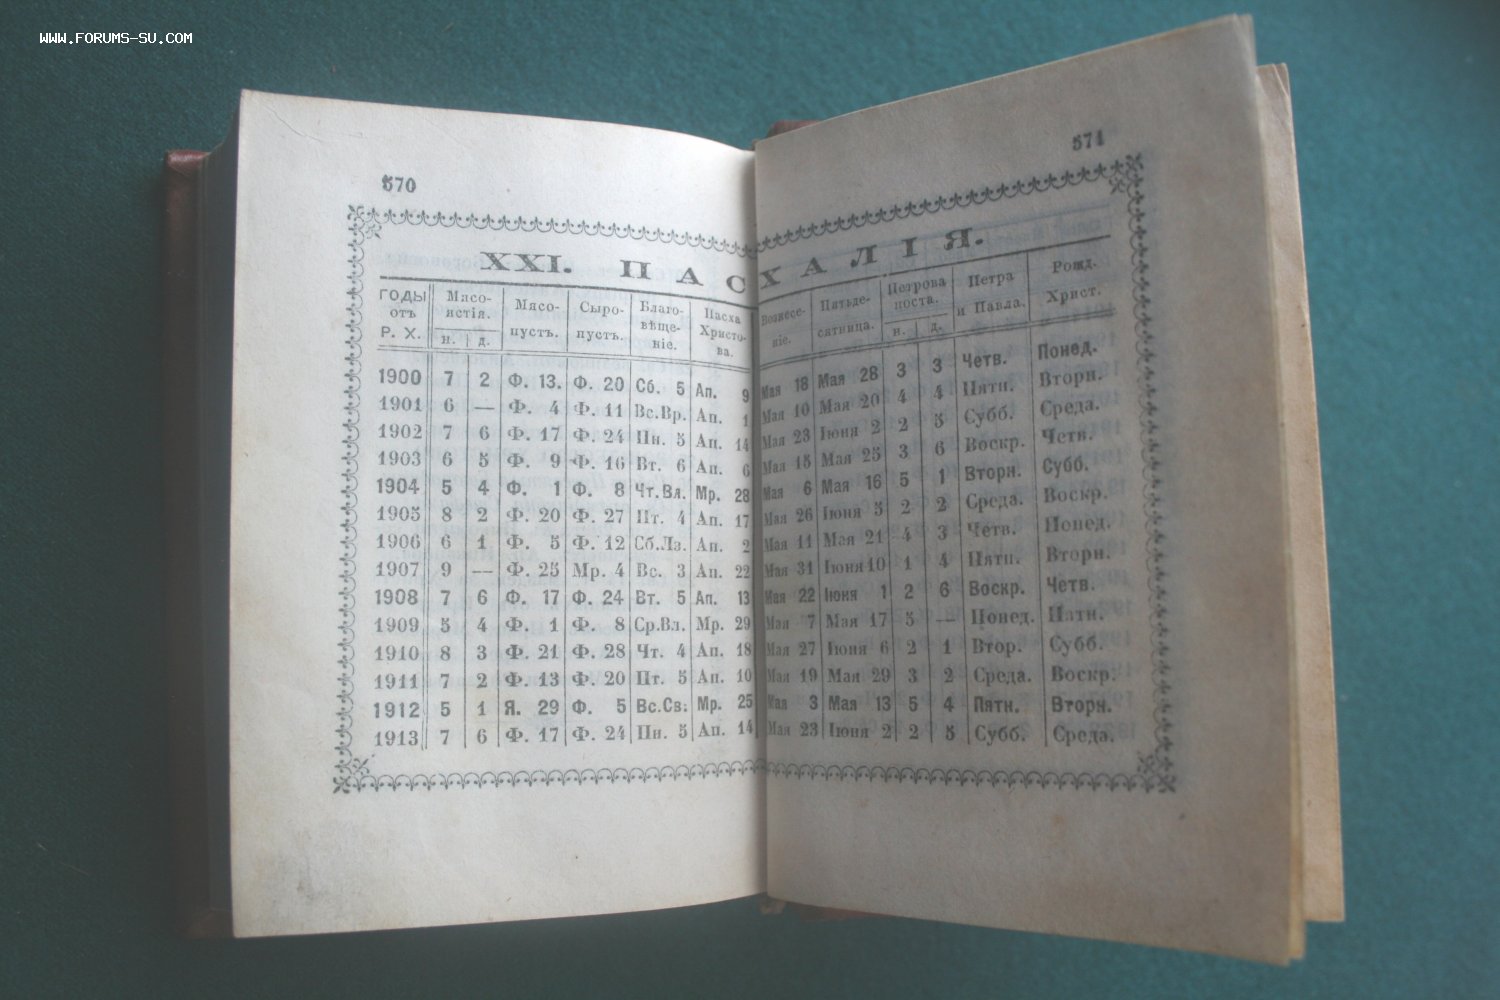 WWW.FORUMS-SU.COM
570
571
XXI. ПАСХАЛІЯ.
ГОДЫ отъ Р. Х. Мясо-истія. н. д. Мясо-пустъ. Сыро-пустъ. Благо-вѣще-ніе. Пасха Христо-ва. Вознесе-ніе. Пятьде-сятница. Петрова поста. н. д. Петра и Павла. Рожд. Христ.
1900 7 2 Ф. 13. Ф. 20 Сб. 5 Ап. 9 Мая 18 Мая 28 3 3 Четв. Понед.
1901 6 — Ф. 4 Ф. 11 Вс.Вр. Ап. 1 Мая 10 Мая 20 4 4 Пятн. Вторн.
1902 7 6 Ф. 17 Ф. 24 Пн. 5 Ап. 14 Мая 23 Іюня 2 2 5 Субб. Среда.
1903 6 5 Ф. 9 Ф. 16 Вт. 6 Ап. 6 Мая 15 Мая 25 3 6 Воскр. Четв.
1904 5 4 Ф. 1 Ф. 8 Чт.Вл. Мр. 28 Мая 6 Мая 16 5 1 Вторн. Субб.
1905 8 2 Ф. 20 Ф. 27 Пт. 4 Ап. 17 Мая 26 Іюня 5 2 2 Среда. Воскр.
1906 6 1 Ф. 5 Ф. 12 Сб.Лз. Ап. 2 Мая 11 Мая 21 4 3 Четв. Понед.
1907 9 — Ф. 25 Мр. 4 Вс. 3 Ап. 22 Мая 31 Іюня 10 1 4 Пятн. Вторн.
1908 7 6 Ф. 17 Ф. 24 Вт. 5 Ап. 13 Мая 22 Іюня 1 2 6 Воскр. Четв.
1909 5 4 Ф. 1 Ф. 8 Ср.Вл. Мр. 29 Мая 7 Мая 17 5 — Понед. Пятн.
1910 8 3 Ф. 21 Ф. 28 Чт. 4 Ап. 18 Мая 27 Іюня 6 2 1 Втор. Субб.
1911 7 2 Ф. 13 Ф. 20 Пт. 5 Ап. 10 Мая 19 Мая 29 3 2 Среда. Воскр.
1912 5 1 Я. 29 Ф. 5 Вс.Св. Мр. 25 Мая 3 Мая 13 5 4 Пятн. Вторн.
1913 7 6 Ф. 17 Ф. 24 Пн. 5 Ап. 14 Мая 23 Іюня 2 2 5 Субб. Среда.